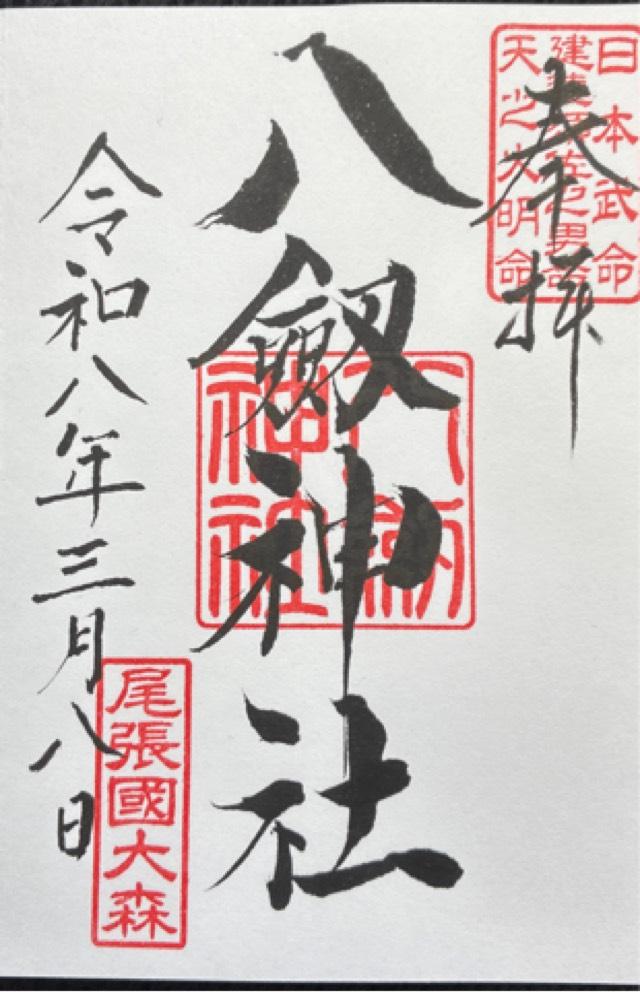 奉拝
日本武命
建速須佐之男命
天之火明命
八劔神社
八剱神社
令和八年三月八日
尾張國大森